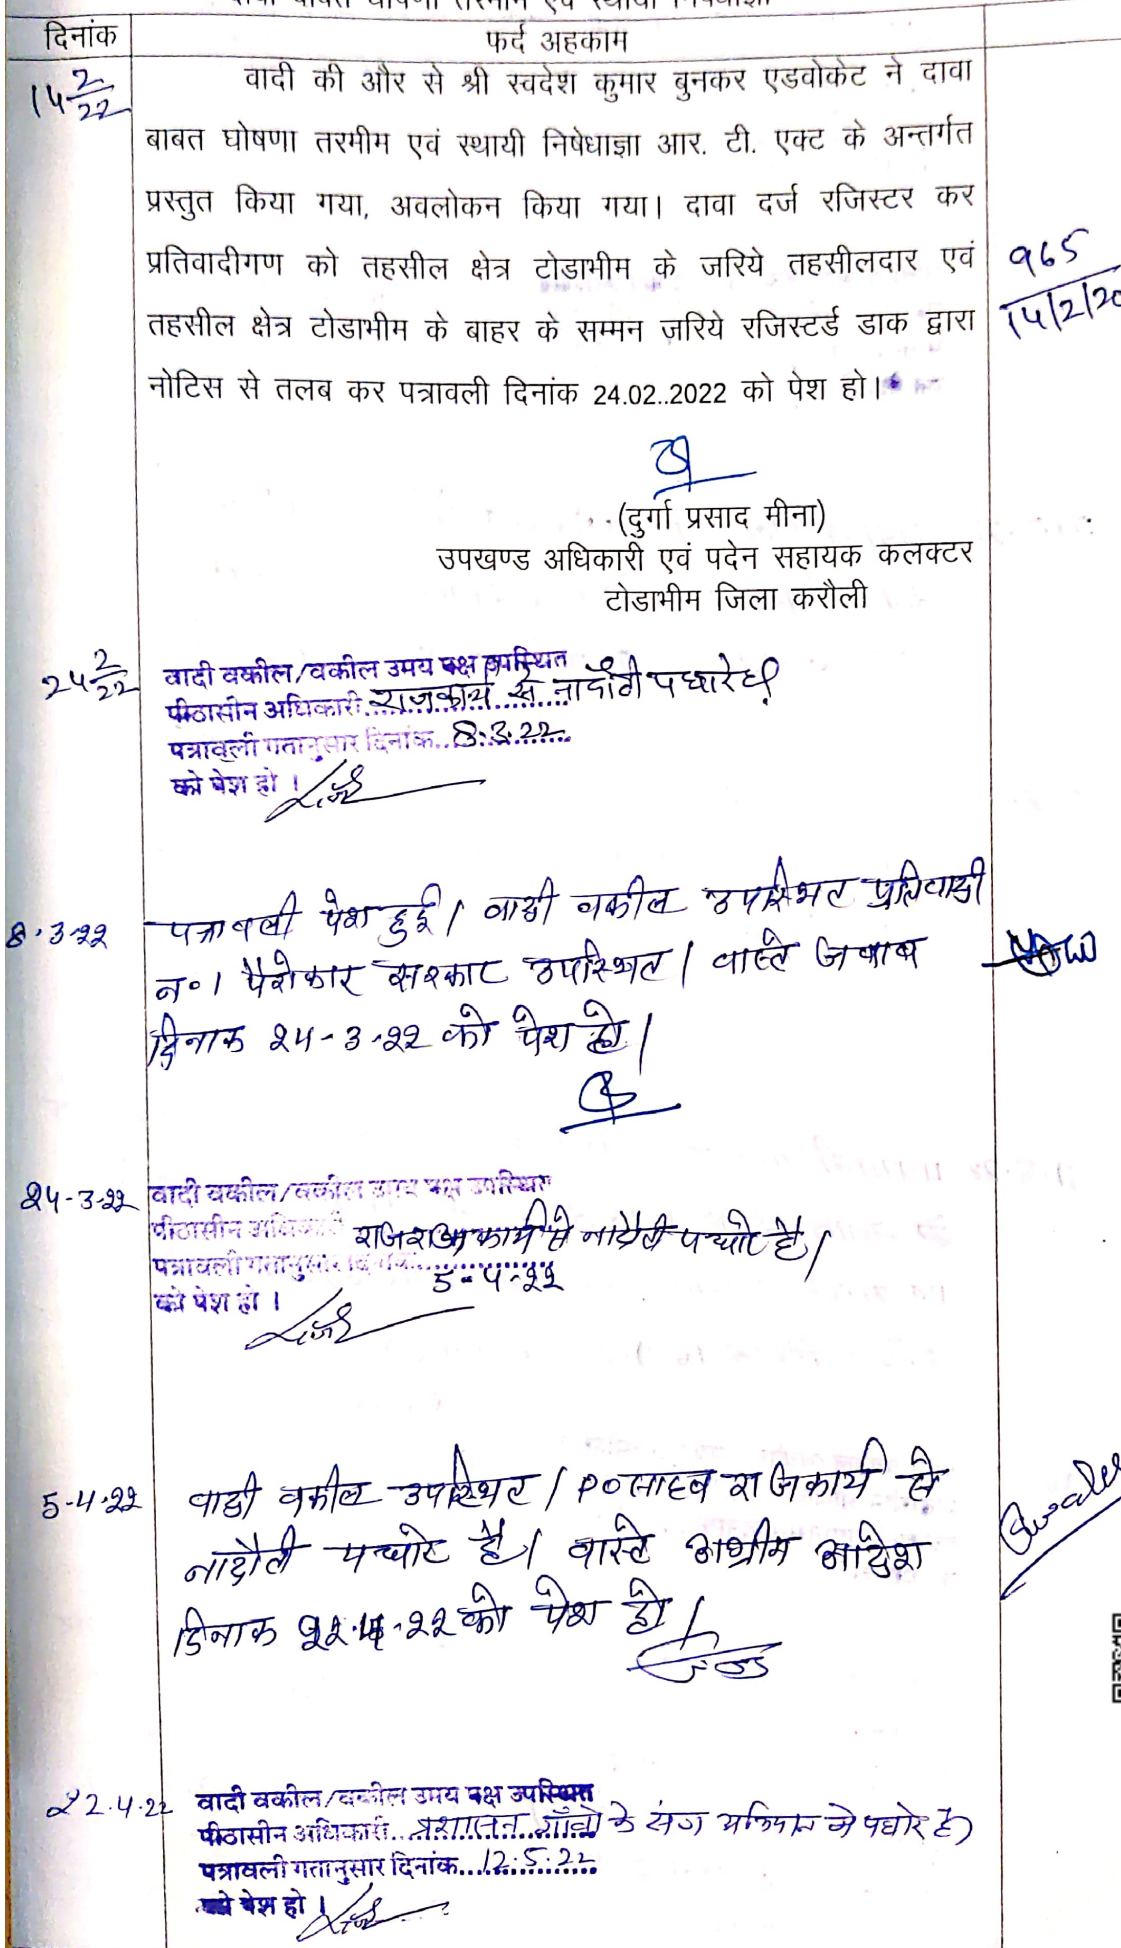 दावा बाबत घोषणा तरमीम एवं स्थायी निषेधाज्ञा
दिनांक
फर्द अहकाम
14 2/22
वादी की और से श्री स्वदेश कुमार बुनकर एडवोकेट ने दावा
बाबत घोषणा तरमीम एवं स्थायी निषेधाज्ञा आर. टी. एक्ट के अन्तर्गत
प्रस्तुत किया गया, अवलोकन किया गया। दावा दर्ज रजिस्टर कर
प्रतिवादीगण को तहसील क्षेत्र टोडाभीम के जरिये तहसीलदार एवं
तहसील क्षेत्र टोडाभीम के बाहर के सम्मन जरिये रजिस्टर्ड डाक द्वारा
नोटिस से तलब कर पत्रावली दिनांक 24.02..2022 को पेश हो।
965
14/2/20
(दुर्गा प्रसाद मीना)
उपखण्ड अधिकारी एवं पदेन सहायक कलक्टर
टोडाभीम जिला करौली
24 2/22
वादी वकील/वकील उमय पक्ष उपस्थित
पीठासीन अधिकारी राजकार्य से नादौती पधारे है।
पत्रावली गतानुसार दिनांक 8.3.22
को पेश हो ।
8.3.22
पत्रावली पेश हुई। वादी वकील उपस्थित प्रतिवादी
न० 1 पैरोकार सरकार उपस्थित। वास्ते जबाब
दिनाक 24-3-22 को पेश हो।
24-3-22
वादी वकील/वकील उमय पक्ष उपस्थित
पीठासीन अधिकारी कार्य से नादौती पधारे है।
पत्रावली गतानुसार दिनांक 5-4-22
को पेश हो ।
5-4-22
वादी वकील उपस्थित। PO साहब राजकार्य से
नादौती पधारे है। वास्ते अग्रीम आदेश
दिनाक 22.4.22 को पेश हो।
22.4.22
वादी वकील/वकील उमय पक्ष उपस्थित
पीठासीन अधिकारी प्रशासन गाँवो के संग अभियान मे पधारे है
पत्रावली गतानुसार दिनांक 12.5.22
को पेश हो ।